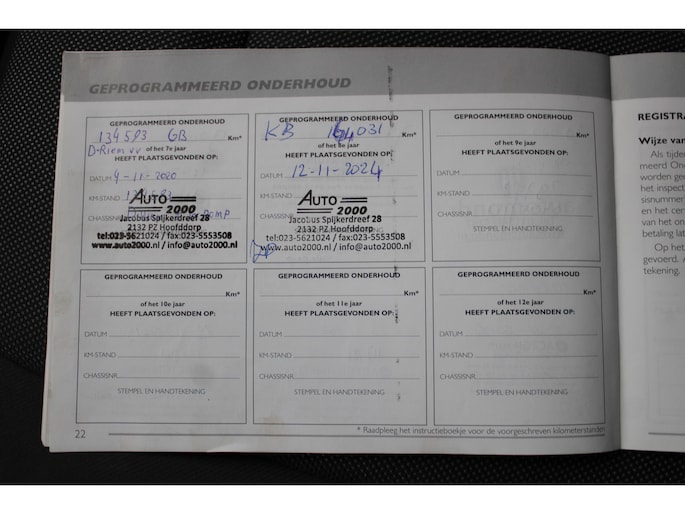 GEPROGRAMMEERD ONDERHOUD
GEPROGRAMMEERD ONDERHOUD
134593 GB Km*
D-Riem vv of het 7e jaar
HEEFT PLAATSGEVONDEN OP:
DATUM 4-11-2020
KM-STAND
CHASSISNR
AUTO
2000
Jacobus Spijkerdreef 28
2132 PZ Hoofddorp
tel:023-5621024 / fax:023-5553508
www.auto2000.nl / info@auto2000.nl
GEPROGRAMMEERD ONDERHOUD
KB 164031 Km*
of het 8e jaar
HEEFT PLAATSGEVONDEN OP:
DATUM 12-11-2024
KM-STAND
AUTO
2000
Jacobus Spijkerdreef 28
2132 PZ Hoofddorp
tel:023-5621024 / fax:023-5553508
www.auto2000.nl / info@auto2000.nl
GEPROGRAMMEERD ONDERHOUD
Km*
of het 9e jaar
HEEFT PLAATSGEVONDEN OP:
DATUM
KM-STAND
CHASSISNR.
STEMPEL EN HANDTEKENING
GEPROGRAMMEERD ONDERHOUD
Km*
of het 10e jaar
HEEFT PLAATSGEVONDEN OP:
DATUM
KM-STAND
CHASSISNR.
STEMPEL EN HANDTEKENING
GEPROGRAMMEERD ONDERHOUD
Km*
of het 11e jaar
HEEFT PLAATSGEVONDEN OP:
DATUM
KM-STAND
CHASSISNR.
STEMPEL EN HANDTEKENING
GEPROGRAMMEERD ONDERHOUD
Km*
of het 12e jaar
HEEFT PLAATSGEVONDEN OP:
DATUM
KM-STAND
CHASSISNR.
STEMPEL EN HANDTEKENING
22
* Raadpleeg het instructieboekje voor de voorgeschreven kilometerstanden
REGISTRA
Wijze van
Als tijden
meerd On
worden ge
het inspect
sisnummer
en het cen
van het on
betaling lat
Op het
gevoerd. A
tekening.